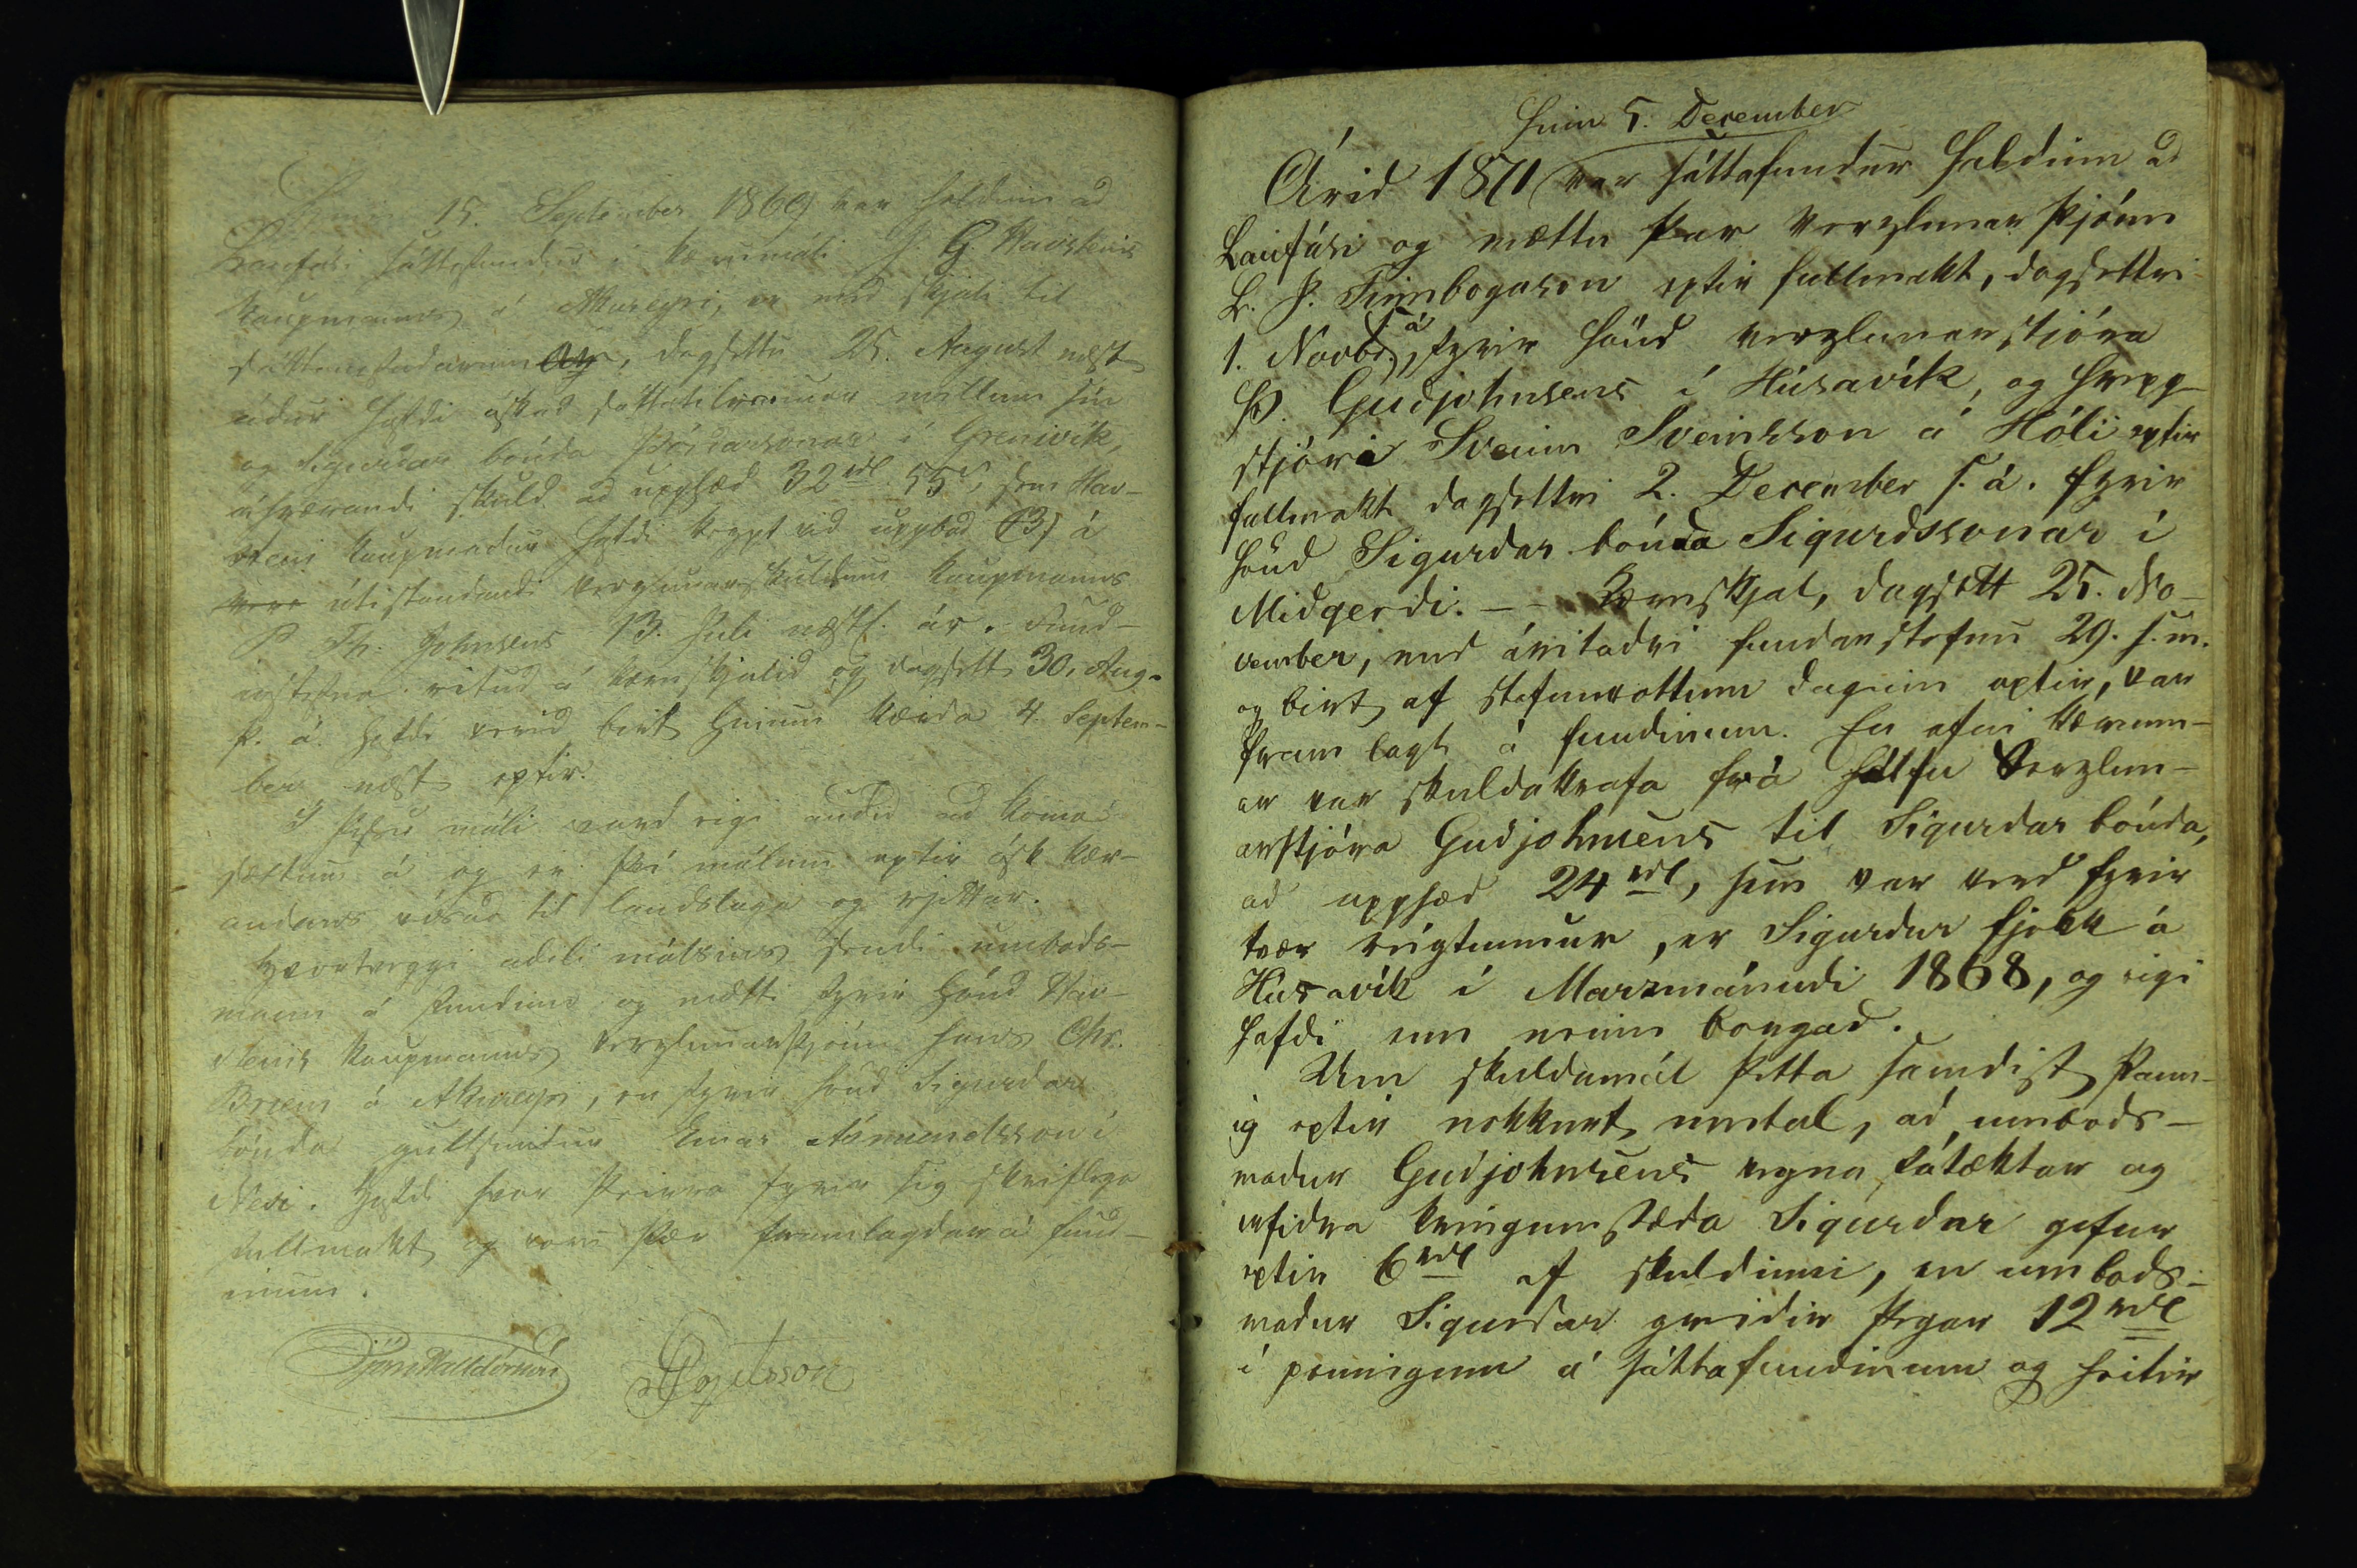 Hinn 15. September 1869 var haldinn ad
Laufási sáttafundur í kærumáli J. G. Havsteins
kaupmanns á Akureyri, er med skjali til
sáttamanna, dagsettu 25. August næst
ádur hafdi óskad sáttatilraunar millum sín
og Sigurdar bónda Þórdarsonar í Grenivík,
áhrærandi skuld ad upphæd 32 rdl. 55 s, sem Hav-
stein kaupmadur hafdi keypt vid uppbod á
útistandandi verzlunarskuldum kaupmanns
P. Th. Johnsens 13. Juli næstl. ár. Fund-
arstefna ritud á kæruskjalid og dagsett 30. Aug.
þ. á. hafdi verid birt hinum kærda 4. Septem-
ber næst eptir.
Í þessu máli vard eigi audid ad koma
sættum á og er því málinu eptir ósk kær-
andans vísad til landslaga og rjettar.
Hvorutveggi adili málsins sendi umbods-
mann á fundinn og mætti fyrir hönd Hav-
steins kaupmanns verzlunarþjónn hans Chr.
Briem á Akureyri, en fyrir hönd Sigurdar
bónda gullsmidur Einar Ásmundsson í
Nesi. Hafdi hvor þeirra fyrir sig skriflega
fullmakt og voru þær framlagdar á fund-
inum.
Björn Halldórsson
Hinn 5. December
Árid 1871 var sáttafundur haldinn ad
Laufási og mættu þar verzlunarþjónn
L. J. Finnbogason eptir fullmakt, dagsettri
1. Novbr. s. á, fyrir hönd verzlunarstjóra
Þ. Gudjohnsens í Húsavík, og hrepp-
stjóri Sveinn Sveinsson á Hóli eptir
fullmakt dagsettri 2. December s. á. fyrir
hönd Sigurdar bónda Sigurdssonar í
Midgerdi. – – Kæruskjal, dagsett 25. No-
vember, med áritadri fundarstefnu 29. s. m.
og birt af stefnuvottum daginn eptir, var
fram lagt á fundinum. En efni kærunn-
ar var skuldakrafa frá hálfu Verzlun-
arstjóra Gudjohnsens til Sigurdar bónda,
ad upphæd 24 rdl, sem var verd fyrir
tvær rúgtunnur, er Sigurdur fjekk á
Húsavík í Marzmánudi 1868, og eigi
hafdi enn neinn borgad.
Um skuldamál þetta samdist þann-
ig eptir nokkurt umtal, ad umbods-
madur Gudjohnsens vegna fátæktar og
erfidra kringumstæda Sigurdar gefur
eptir 6 rdl af skuldinni, en umbods-
madur Sigurdar greidir þegar 12 rdl
í peningum á sáttafundinum og heitir